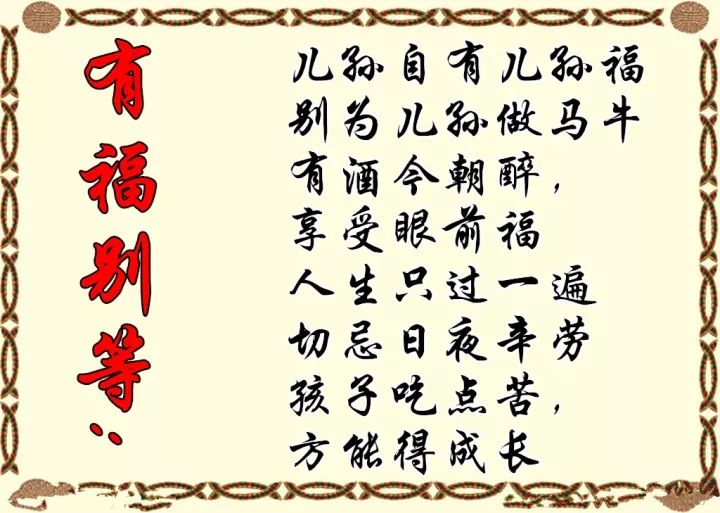 有福别等：
儿孙自有儿孙福
别为儿孙做马牛
有酒今朝醉，
享受眼前福
人生只过一遍
切忌日夜辛劳
孩子吃点苦，
方能得成长